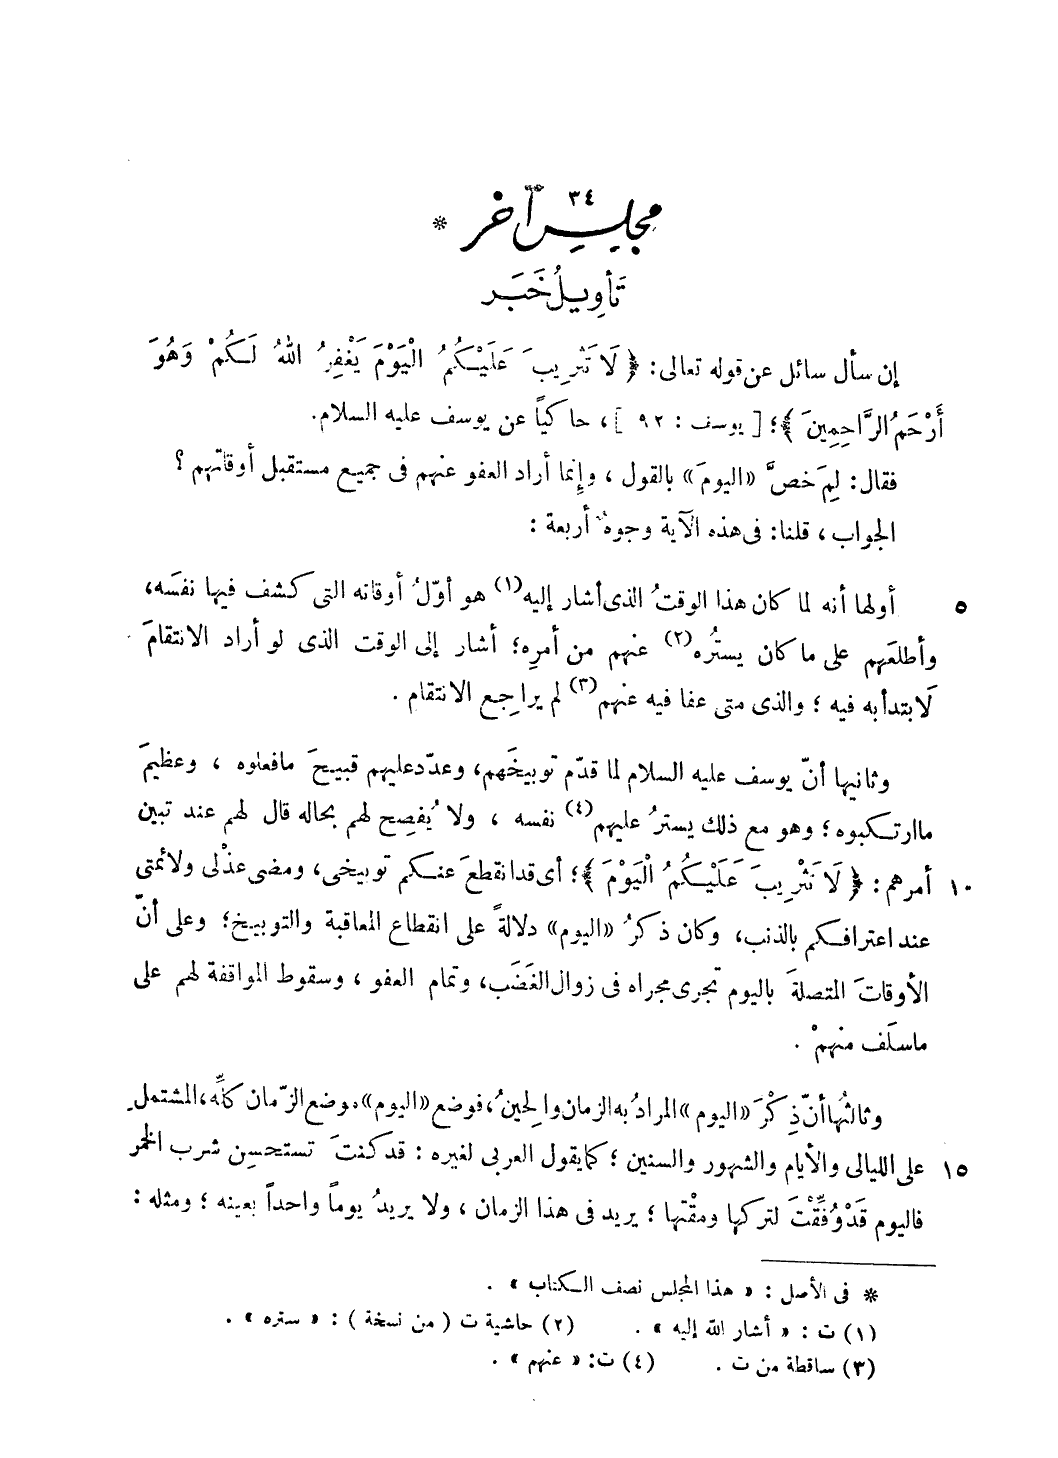 ٣٤
مجلس آخر *
تأويل خَبَر
إن سأل سائل عن قوله تعالى: ﴿ لَا تَثْرِيبَ عَلَيْكُمُ الْيَوْمَ يَغْفِرُ اللهُ لَكُمْ وَهُوَ
أَرْحَمُ الرَّاحِمِينَ ﴾؛ [ يوسف : ٩٢ ]، حاكياً عن يوسف عليه السلام.
فقال: لِمَ خصَّ «اليومَ» بالقول ، وإنما أراد العفو عنهم فى جميع مستقبل أوقاتهم ؟
الجواب ، قلنا: فى هذه الآية وجوهٌ أربعة :
٥ أولها أنه لما كان هذا الوقتُ الذى أشار إليه(١) هو أوّلُ أوقاته التى كشف فيها نفسَه،
وأطلعَهم على ما كان يستُره(٢) عنهم من أمرِه؛ أشار إلى الوقت الذى لو أراد الانتقامَ
لَابتدأ به فيه ؛ والذى متى عفا فيه عنهم(٣) لم يراجِع الانتقام .
وثانيها أنّ يوسف عليه السلام لما قدّم توبيخَهم، وعدّد عليهم قبيحَ مافعلوه ، وعظيمَ
ماارتكبوه ؛ وهو مع ذلك يسترُ عليهم(٤) نفسه ، ولا يُفصِح لهم بحاله قال لهم عند تبين
١٠ أمرهم : ﴿ لَا تَثْرِيبَ عَلَيْكُمُ الْيَوْمَ ﴾؛ أى قدانقطعَ عنكم توبيخى، ومضى عذْلى ولائمتى
عند اعترافكم بالذنب، وكان ذكرُ «اليوم» دلالةً على انقطاع المعاقبة والتوبيخ؛ وعلى أنّ
الأوقاتَ المتصلةَ باليوم تجرى مجراه فى زوال الغَضَب، وتمام العفو ، وسقوط المواقفة لهم على
ماسلَف منهمْ .
وثالثُها أنّ ذِكْرَ «اليوم» المرادُ به الزمان والحِينُ، فوضع «اليوم» موضع الزّمان كلِّه، المشتمل
١٥ على الليالى والأيام والشهور والسنين ؛ كما يقول العربى لغيره : قد كنتَ تستحسِن شرب الخمر
فاليوم قَدْ وُفِّقْتَ لتركها ومقْتها ؛ يريد فى هذا الزمان ، ولا يريدُ يوماً واحداً بعينه ؛ ومثله :
* فى الأصل : « هذا المجلس نصف الكتاب » .
(١) ت : « أشار اللّه إليه » . (٢) حاشية ت ( من نسخة ) : « ستره » .
(٣) ساقطة من ت . (٤) ت: « عنهم » .